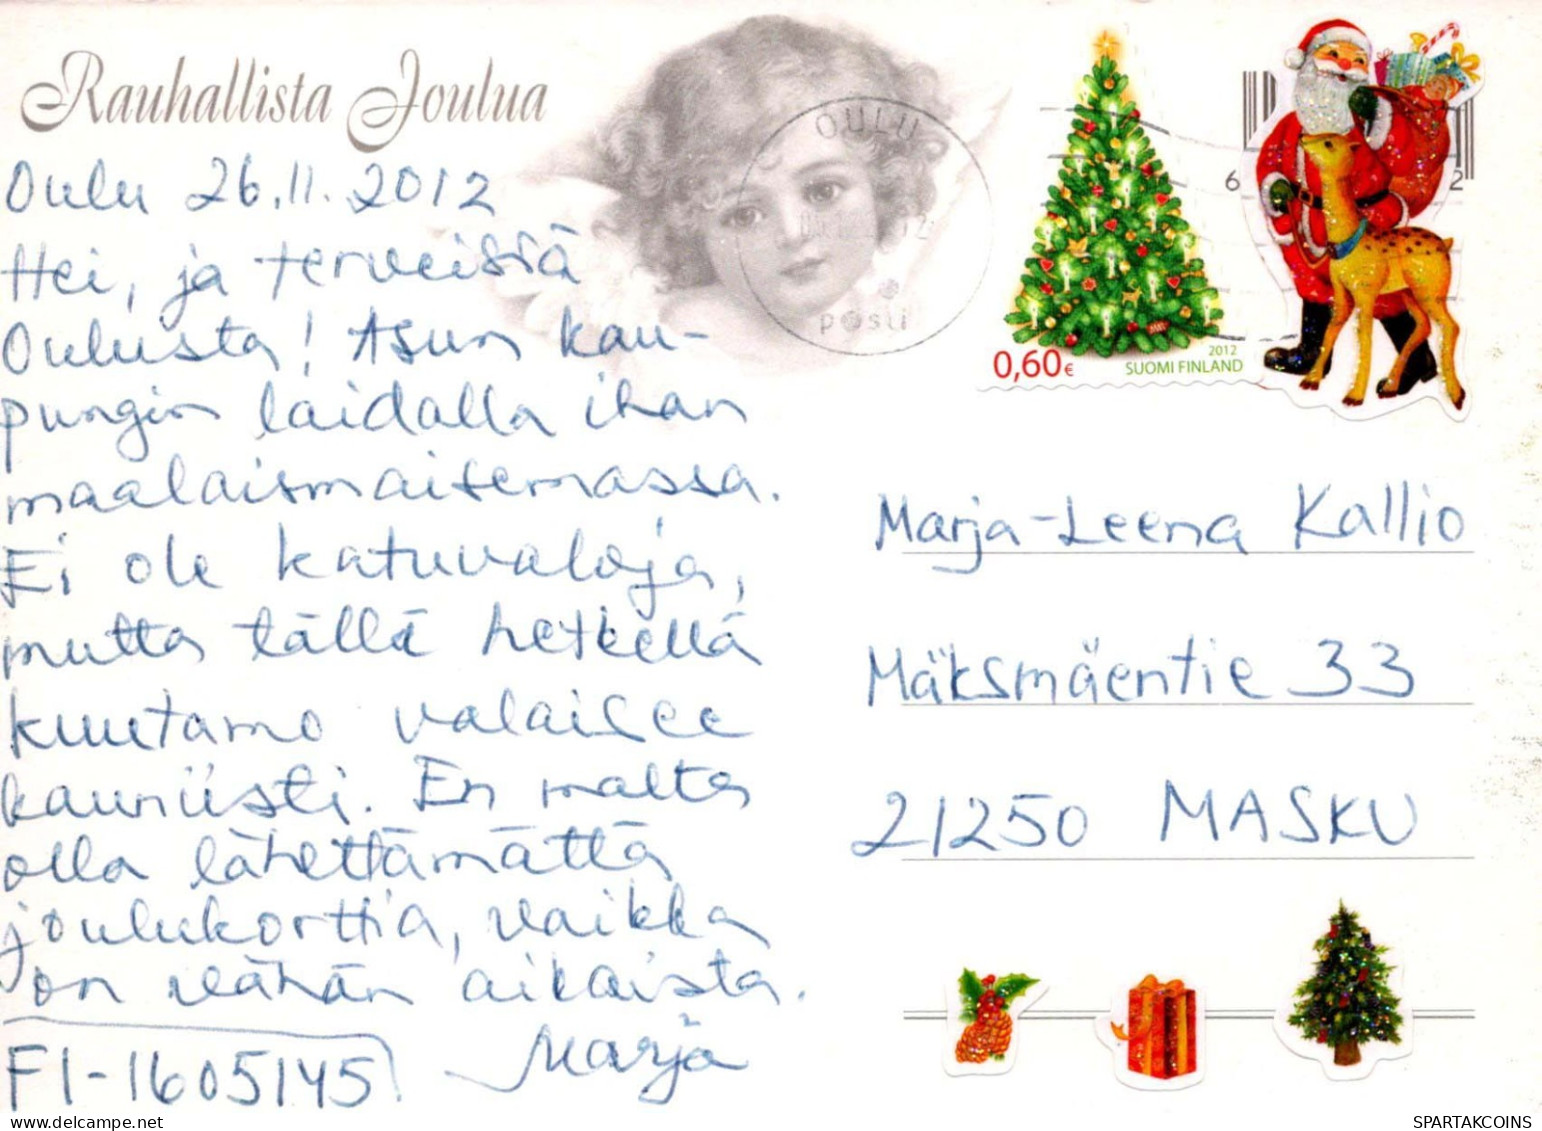 Rauhallista Joulua
Oulu 26.11.2012
Hei, ja terveisiä
Oulusta! Asun kau-
pungin laidalla ihan
maalaismaisemassa.
Ei ole katuvaloja,
mutta tällä hetkellä
kuutamo valaisee
kauniisti. En malta
olla lähettämättä
joulukorttia, vaikka
on vähän aikaista.
FI-1605145
Marja
OULU
posti
0,60€
2012
SUOMI FINLAND
6
2
Marja-Leena Kallio
Mäksmäentie 33
21250 MASKU
delcampe.net
SPARTAKCOINS